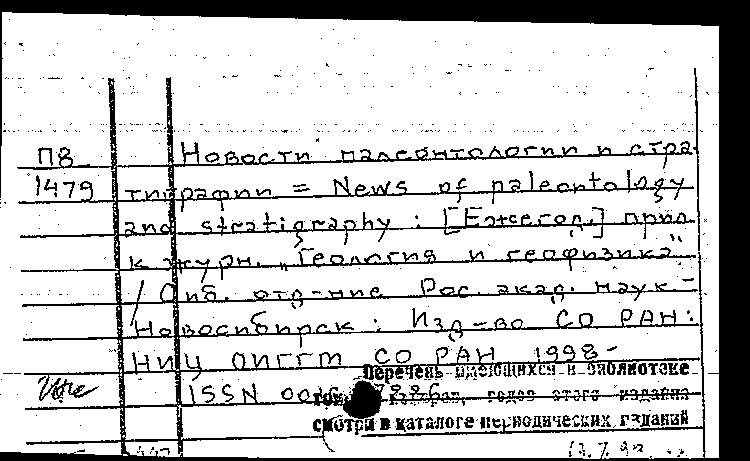 П8 Новости палеонтологии и стра
1479 тиграфии = News of paleontology
and stratigraphy : [Ежегод.] прил.
к журн. „Геология и геофизика"
/ Сиб. отд-ние Рос. акад. наук -
Новосибирск : Изд-во СО РАН:
НИЦ ОИГГМ СО РАН 1998-
Перечень имеющихся в библиотеке
ISSN 0016-7886
номеров, годов этого издания
смотри в каталоге периодических изданий